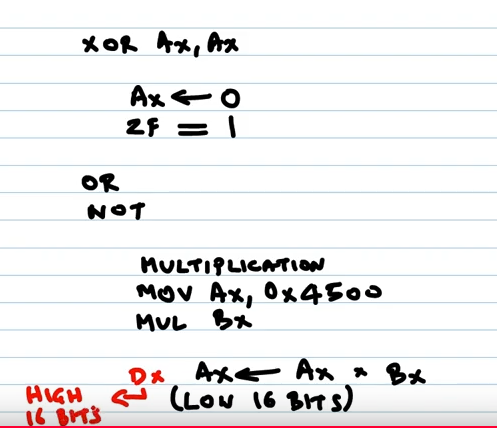 XOR AX, AX
AX ← 0
ZF = 1
OR
NOT
MULTIPLICATION
MOV AX, 0x4500
MUL BX
DX AX ← AX * BX
HIGH ← (LOW 16 BITS)
16 BITS